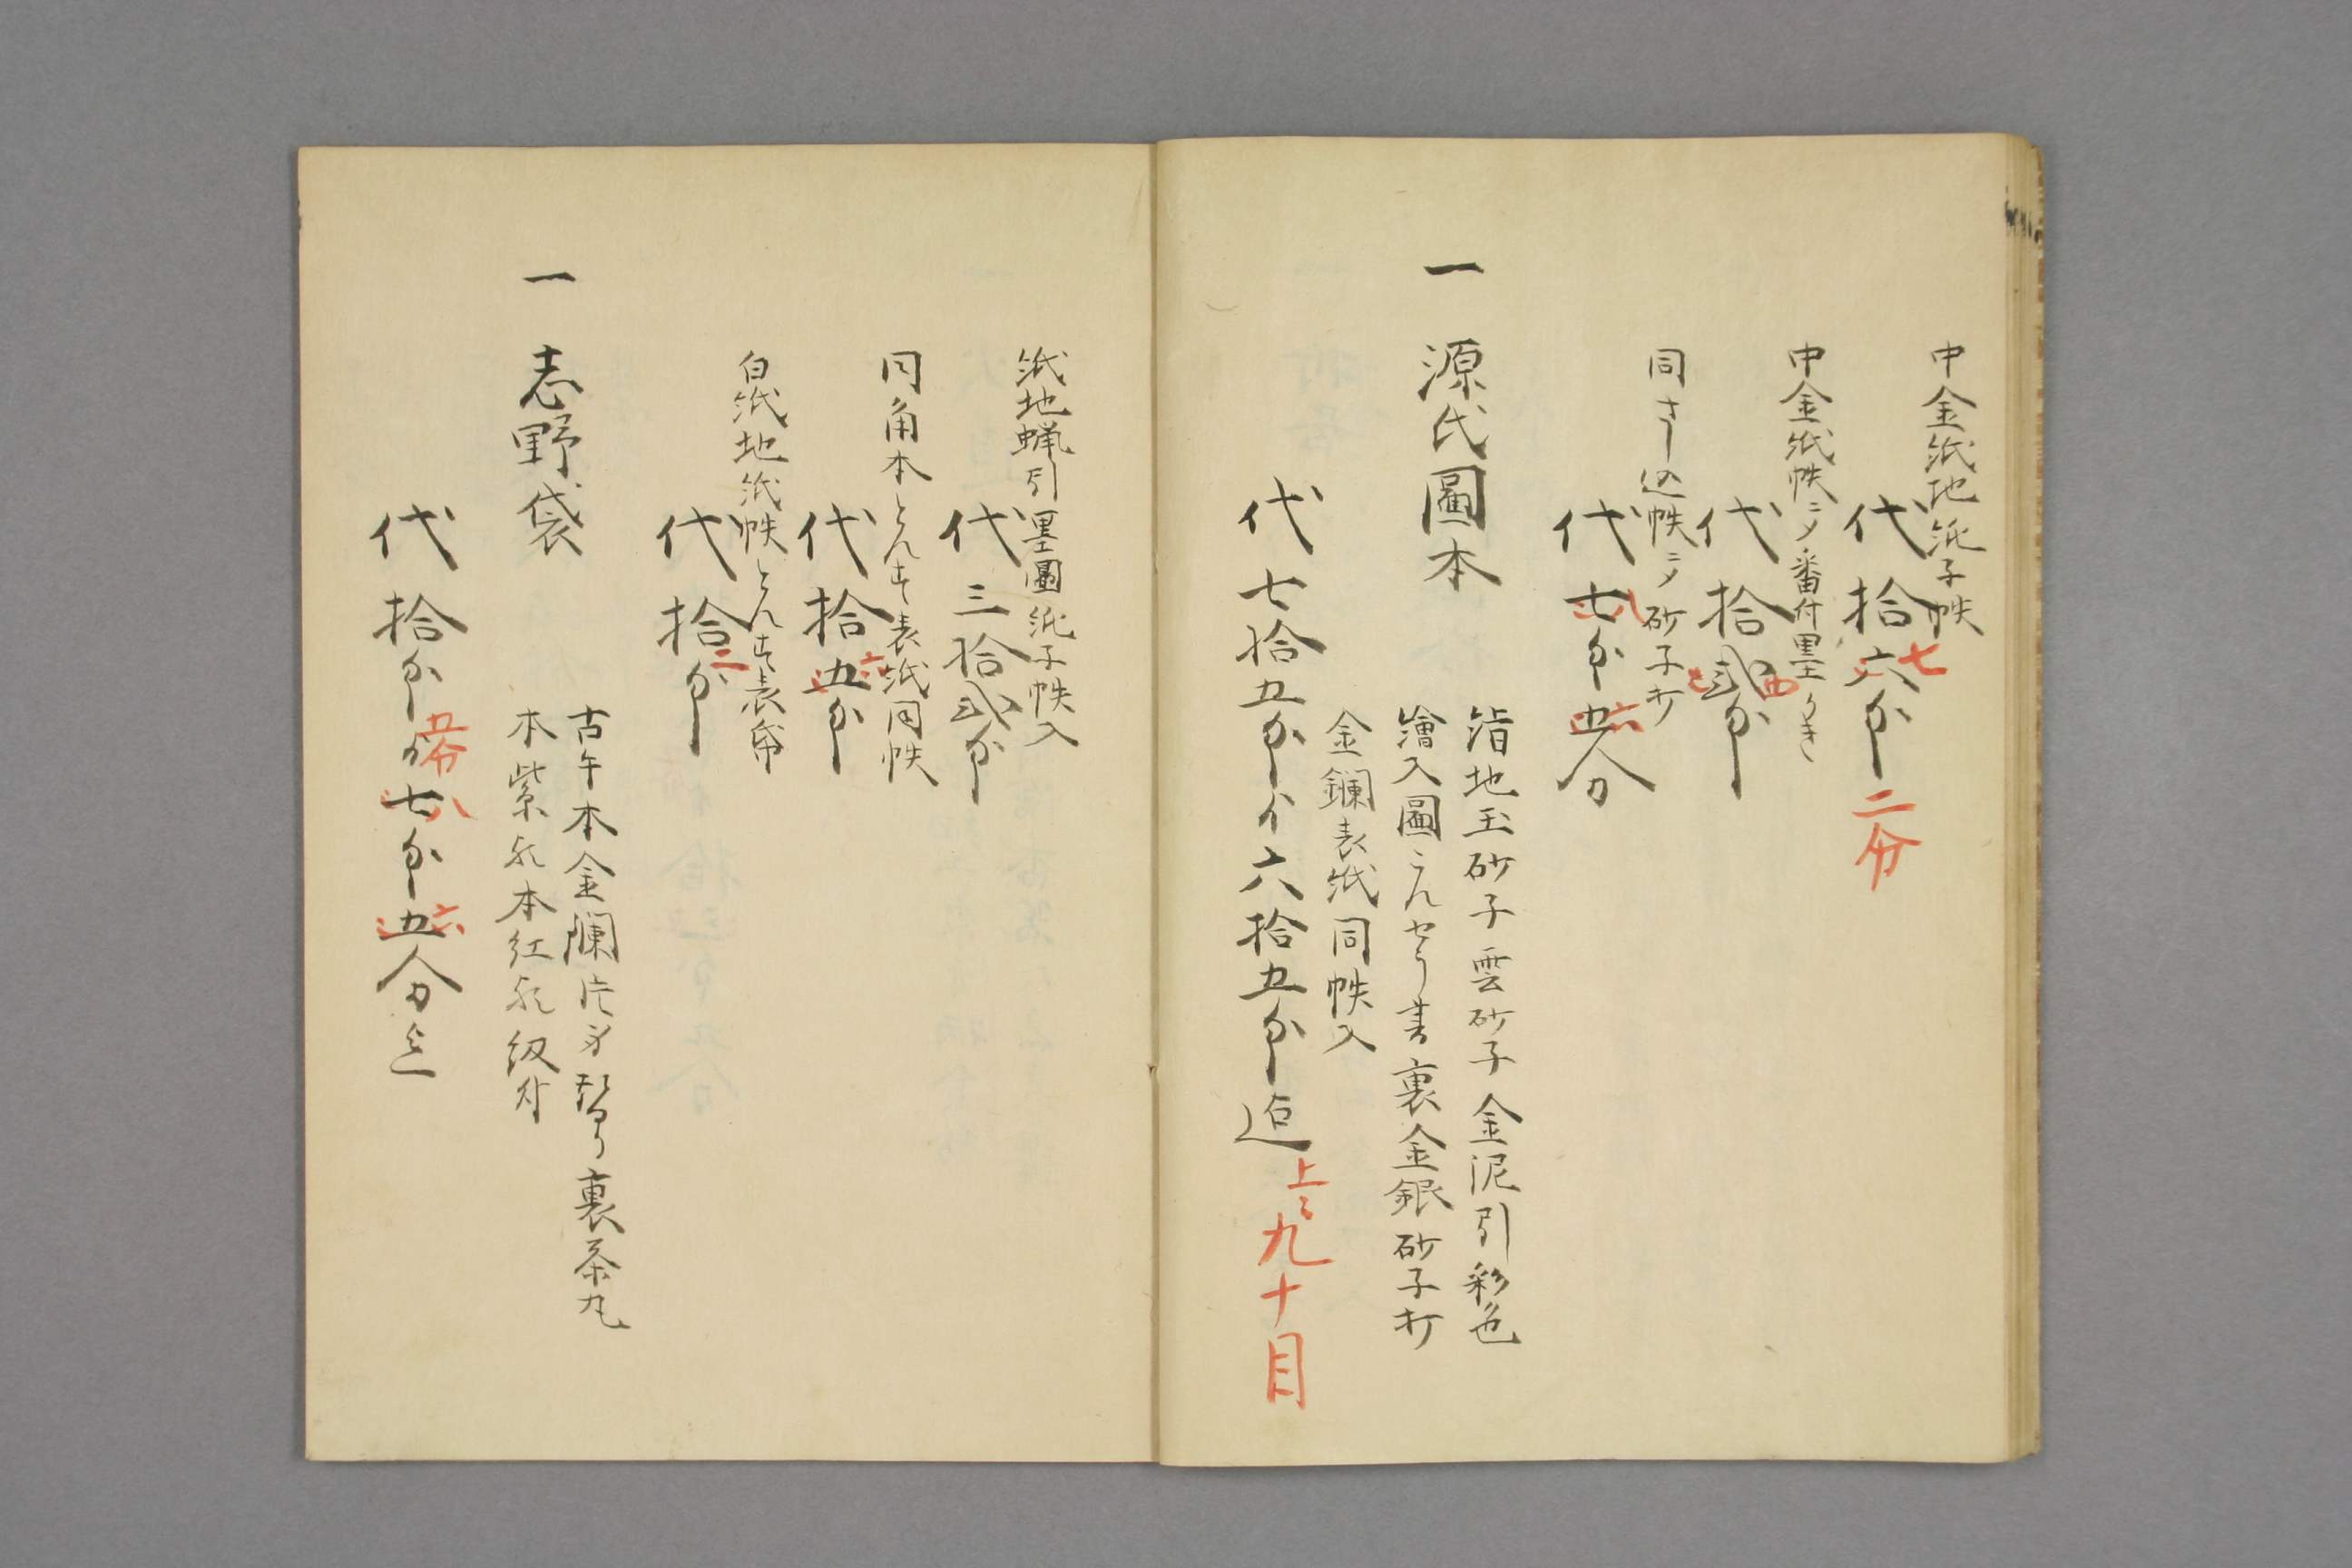 中金紙地紙子帙
代拾六匁
七
二分
中金紙帙ニノ番付墨かき
代拾弐匁
四
同さし込帙ニノ砂子打
代七匁五分
八
六
一 源氏圖本
地玉砂子雲砂子金泥引彩色
繪入圖こんせう書裏金銀砂子打
金鑭表紙同帙入
代七拾五匁六拾五匁迄
上々九十目
紙地蝋引墨圖紙子帙入
代三拾弐匁
同角本とんす表紙同帙
代拾五匁
六
白紙地紙帙とんす表帋
代拾匁
二
一 志野袋
古午本金襴片身替り裏茶丸
本紫 本紅 紐付
代拾匁 七匁五分迄
五分
八
六